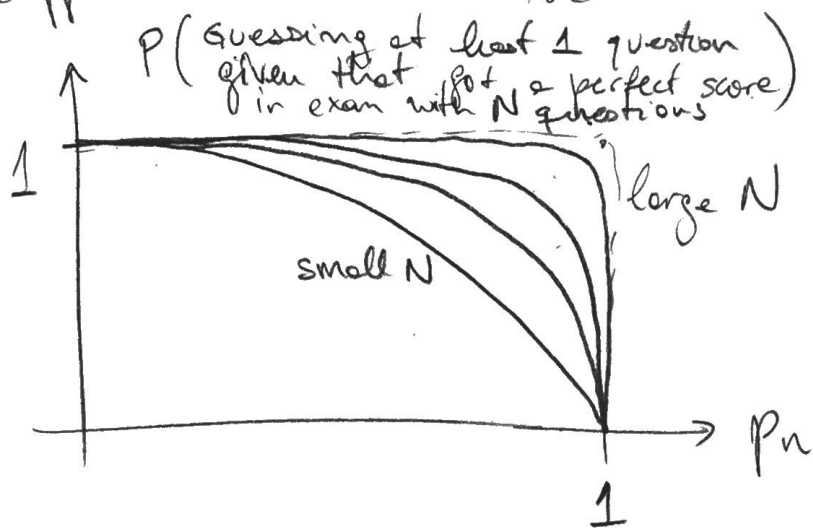 P(Guessing at least 1 question
given that got a perfect score)
in exam with N questions
1
large N
small N
Pn
1